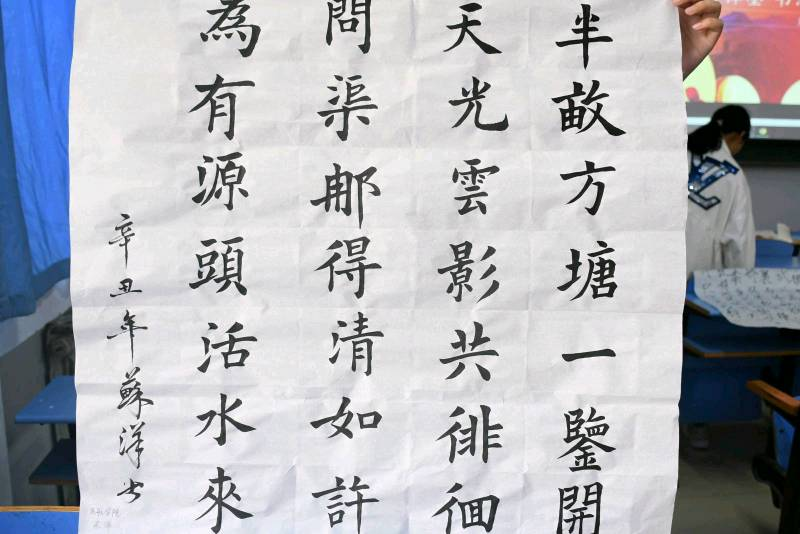 半畝方塘一鑒開
天光雲影共徘徊
問渠那得清如許
為有源頭活水來
辛丑年蘇洋书